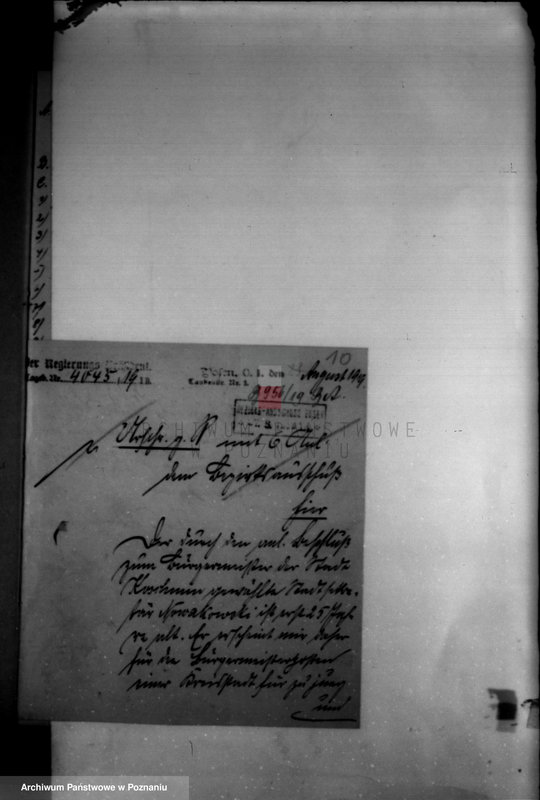 10
Der Regierungs-Präsident.
Tageb. Nr. 4045/19 I B.
Posen, O. 1. den August 1919
Taubenstr. Nr. 1.
956/19
Urschr. g. R mit 6 Anl
dem Bezirksausschuß
hier
Der durch den anl. Beschluß
zum Bürgermeister der Stadt
gewählte Stadtsekre-
tär Nowakowski ist erst 25 Jah-
re alt. Er erscheint mir daher
für den Bürgermeisterposten
einer Kreisstadt für zu jung
und
ARCHIWUM PAŃSTWOWE
W POZNANIU
Archiwum Państwowe w Poznaniu